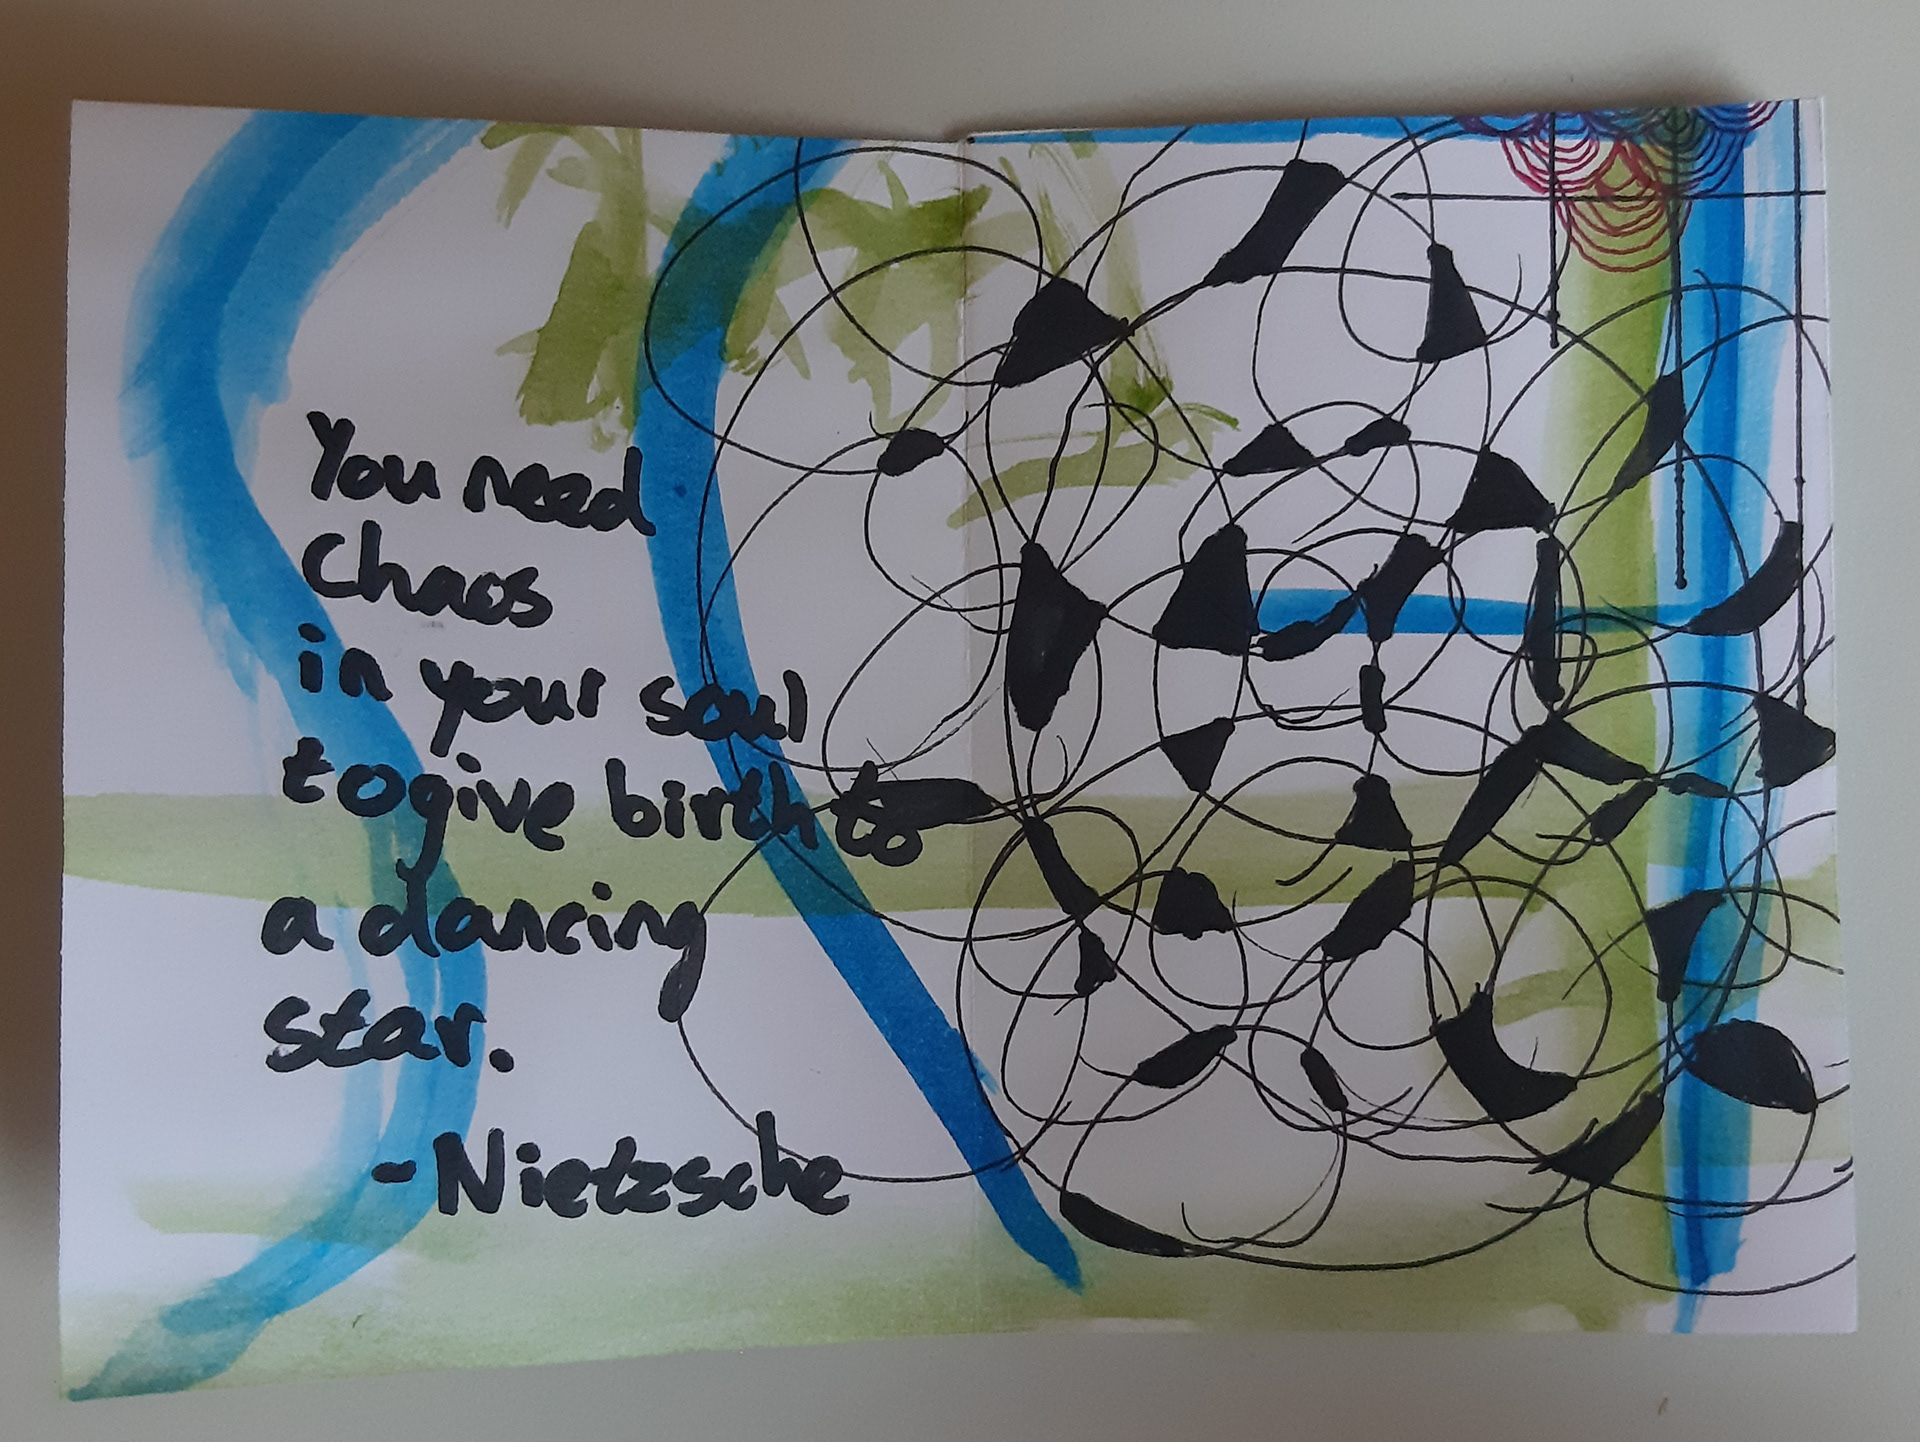 You need
Chaos
in your soul
to give birth to
a dancing
star.
- Nietzsche